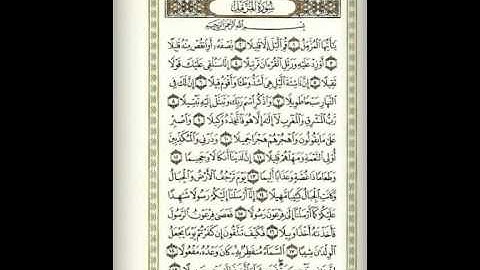 سُورَةُ المُزَّمِّل
بِسْمِ اللَّهِ الرَّحْمَٰنِ الرَّحِيمِ
يَٰٓأَيُّهَا الْمُزَّمِّلُ ١ قُمِ الَّيْلَ إِلَّا قَلِيلًا ٢ نِّصْفَهُۥٓ أَوِ انقُصْ مِنْهُ قَلِيلًا
٣ أَوْ زِدْ عَلَيْهِ وَرَتِّلِ الْقُرْءَانَ تَرْتِيلًا ٤ إِنَّا سَنُلْقِي عَلَيْكَ قَوْلًا
ثَقِيلًا ٥ إِنَّ نَاشِئَةَ الَّيْلِ هِيَ أَشَدُّ وَطْـًٔا وَأَقْوَمُ قِيلًا ٦ إِنَّ لَكَ فِي
النَّهَارِ سَبْحًا طَوِيلًا ٧ وَاذْكُرِ اسْمَ رَبِّكَ وَتَبَتَّلْ إِلَيْهِ تَبْتِيلًا ٨
رَّبُّ الْمَشْرِقِ وَالْمَغْرِبِ لَآ إِلَٰهَ إِلَّا هُوَ فَاتَّخِذْهُ وَكِيلًا ٩ وَاصْبِرْ
عَلَىٰ مَا يَقُولُونَ وَاهْجُرْهُمْ هَجْرًا جَمِيلًا ١٠ وَذَرْنِي وَالْمُكَذِّبِينَ
أُو۟لِي النَّعْمَةِ وَمَهِّلْهُمْ قَلِيلًا ١١ إِنَّ لَدَيْنَآ أَنكَالًا وَجَحِيمًا ١٢
وَطَعَامًا ذَا غُصَّةٍ وَعَذَابًا أَلِيمًا ١٣ يَوْمَ تَرْجُفُ الْأَرْضُ وَالْجِبَالُ
وَكَانَتِ الْجِبَالُ كَثِيبًا مَّهِيلًا ١٤ إِنَّآ أَرْسَلْنَآ إِلَيْكُمْ رَسُولًا شَٰهِدًا
عَلَيْكُمْ كَمَآ أَرْسَلْنَآ إِلَىٰ فِرْعَوْنَ رَسُولًا ١٥ فَعَصَىٰ فِرْعَوْنُ الرَّسُولَ
فَأَخَذْنَٰهُ أَخْذًا وَبِيلًا ١٦ فَكَيْفَ تَتَّقُونَ إِن كَفَرْتُمْ يَوْمًا يَجْعَلُ
الْوِلْدَٰنَ شِيبًا ١٧ السَّمَآءُ مُنفَطِرٌۢ بِهِۦ كَانَ وَعْدُهُۥ مَفْعُولًا ١٨
إِنَّ هَٰذِهِۦ تَذْكِرَةٌ فَمَن شَآءَ اتَّخَذَ إِلَىٰ رَبِّهِۦ سَبِيلًا ١٩